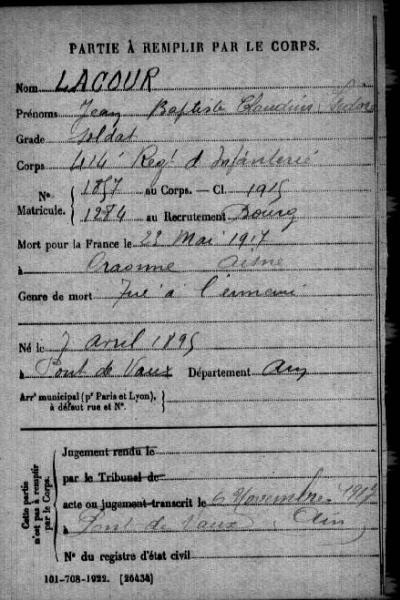 PARTIE À REMPLIR PAR LE CORPS.
Nom LACOUR
Prénoms Jean Baptiste Claudius Isidore
Grade Soldat
Corps 414e Regt d'Infanterie
Nº Matricule. { 1857 au Corps. — Cl. 1915
1284 au Recrutement Bourg
Mort pour la France le 22 Mai 1917
à Craonne Aisne
Genre de mort Tué à l'ennemi
Né le 7 avril 1895
à Pont de Vaux Département Ain
Arrt municipal (pr Paris et Lyon), à défaut rue et Nº. }
Cette partie n'est pas à remplir par le Corps.
Jugement rendu le
par le Tribunal de
acte ou jugement transcrit le 6 Novembre 1917
à Pont de Vaux Ain
Nº du registre d'état civil
101-708-1922. [26434]